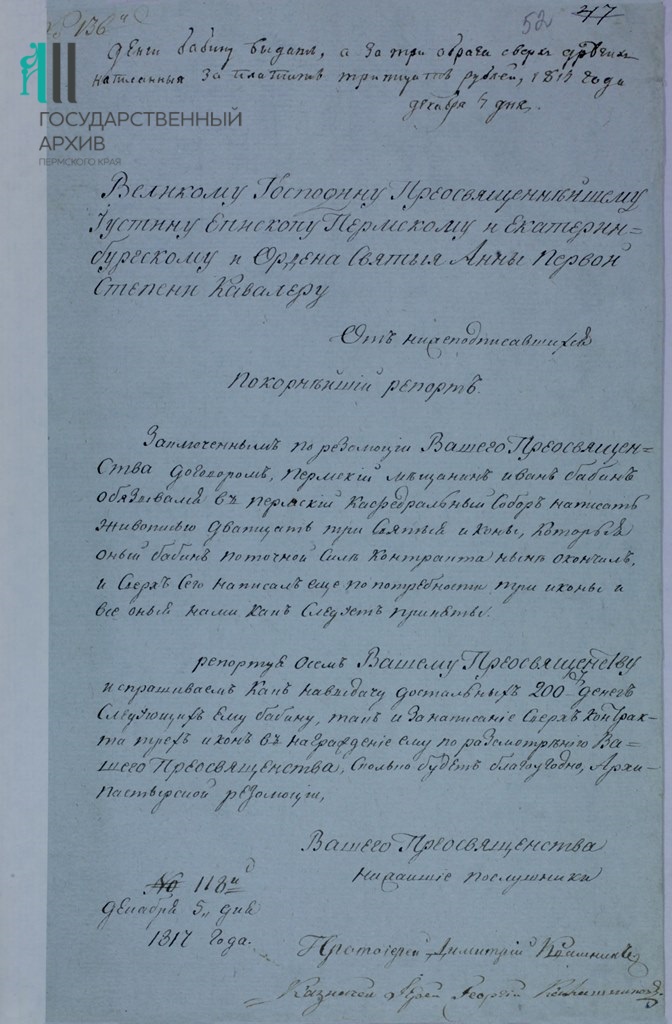 136
52 47
Денги бабину выданы, а за три образа сверх
написанныя заплатить тритцать рублей, 1817 года
декабря 7 дня.
ГОСУДАРСТВЕННЫЙ
АРХИВ
ПЕРМСКОГО КРАЯ
Великому Господину Преосвященнѣйшему
Іустину Епископу Пермскому и Екатерин=
бургскому и Ордена Святыя Анны Первой
Степени Кавалеру
Отъ нижеподписавшихся
Покорнѣйшій репортъ.
Заключеннымъ по резолюціи Вашего Преосвящен-
ства договоромъ, Пермскій мѣщанинъ иванъ бабинъ
обязывался въ пермскій Кафедральный Соборъ написать
живописью дватцать три Святыя иконы, Которыя
оный бабинъ по точной Силѣ Контракта нынѣ окончилъ,
и Сверхъ Сего написалъ еще по потребности три иконы и
все оныя нами какъ Слѣдуетъ приняты.
репортуя о семъ Вашему Преосвященству
испрашиваемъ Какъ на выдачу достальныхъ 200 денегъ
Слѣдующихъ Ему бабину, такъ и за написаніе Сверхъ Контрак-
та трехъ иконъ въ награжденіе ему по разсмотрѣнію Ва-
шего Преосвященства, Сколько будетъ благоугодно, Архи-
пастырской резолюціи,
Вашего Преосвященства
нижайшіе послушники
№ 118
декабря 5 дня
1817 года.
Протоіерей Димитрій
Казначей Іерей Георгій